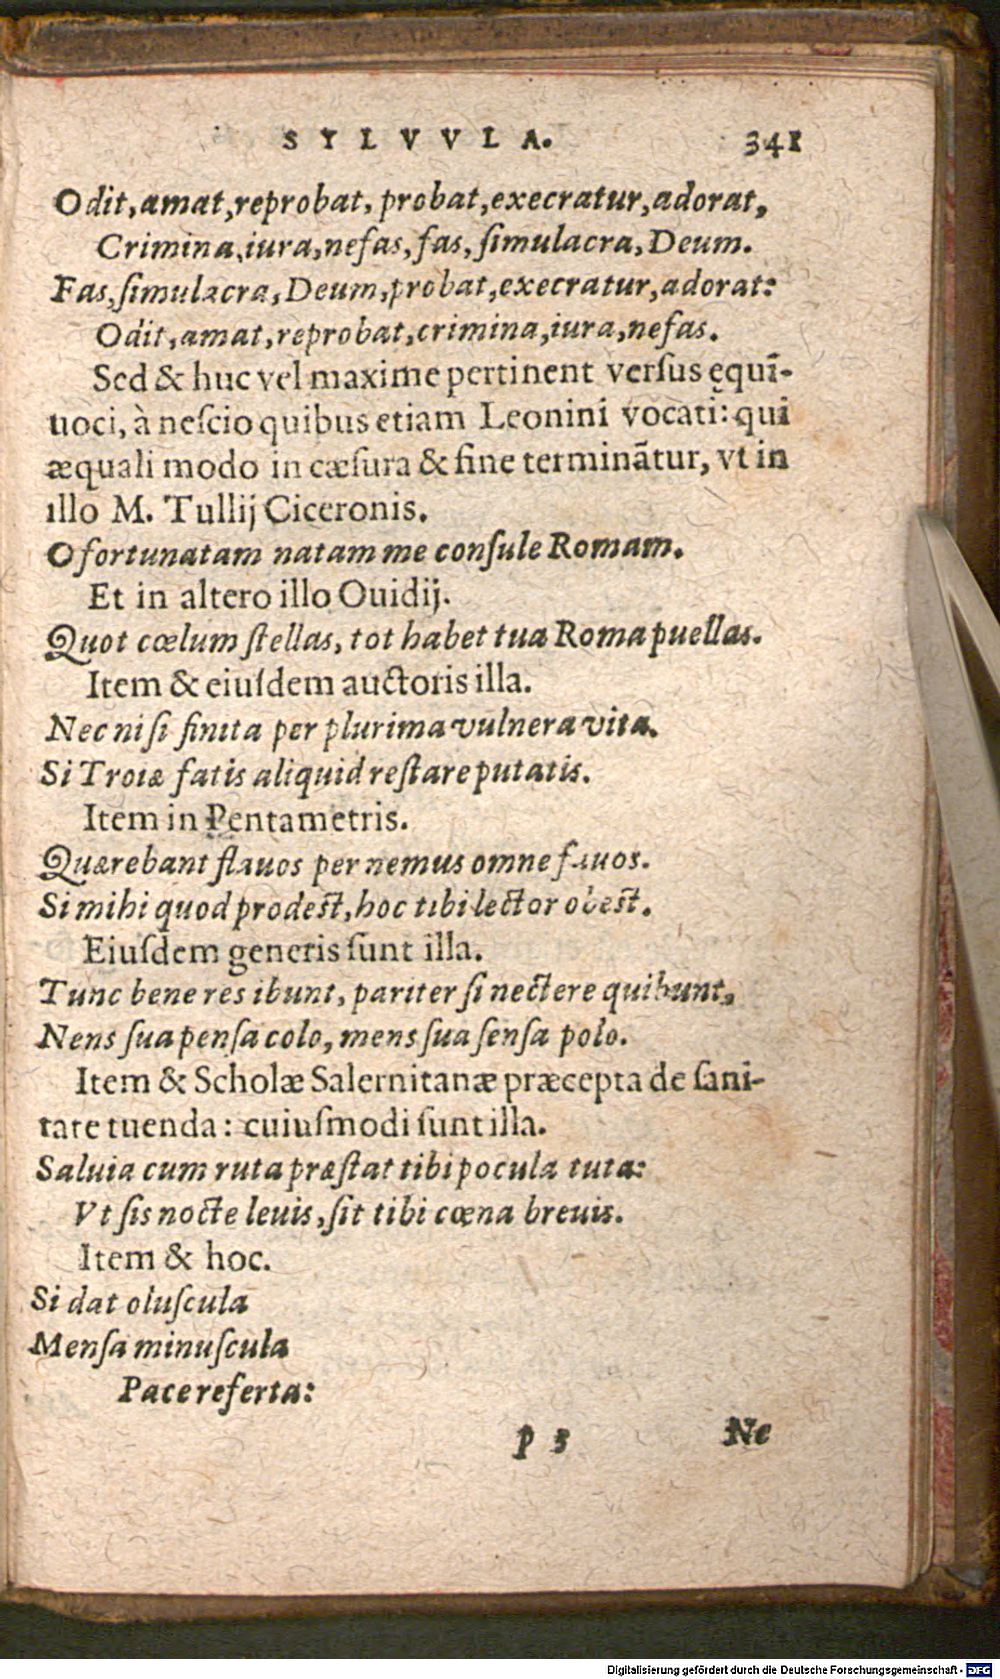 SYLVVLA. 341
Odit, amat, reprobat, probat, execratur, adorat,
Crimina, iura, nefas, fas, ſimulacra, Deum.
Fas, ſimulacra, Deum, probat, execratur, adorat:
Odit, amat, reprobat, crimina, iura, nefas.
Sed & huc vel maxime pertinent verſus ęquĩ-
uoci, à neſcio quibus etiam Leonini vocati: qui
æquali modo in cæſura & fine terminãtur, vt in
illo M. Tullij Ciceronis.
O fortunatam natam me conſule Romam.
Et in altero illo Ouidij.
Quot cœlum ſtellas, tot habet tua Roma puellas.
Item & eiuſdem auctoris illa.
Nec niſi finita per plurima vulnera vita.
Si Troiæ fatis aliquid reſtare putatis.
Item in Pentametris.
Quærebant flauos per nemus omne fauos.
Si mihi quod prodeſt, hoc tibi lector obeſt.
Eiuſdem generis ſunt illa.
Tunc bene res ibunt, pariter ſi nectere quibunt,
Nens ſua penſa colo, mens ſua ſenſa polo.
Item & Scholæ Salernitanæ præcepta de ſani-
tare tuenda: cuiuſmodi ſunt illa.
Saluia cum ruta præſtat tibi pocula tuta:
Vt ſis nocte leuis, ſit tibi cœna breuis.
Item & hoc.
Si dat oluſcula
Menſa minuſcula
Pace referta:
p 3 Ne
Digitalisierung gefördert durch die Deutsche Forschungsgemeinschaft - DFG